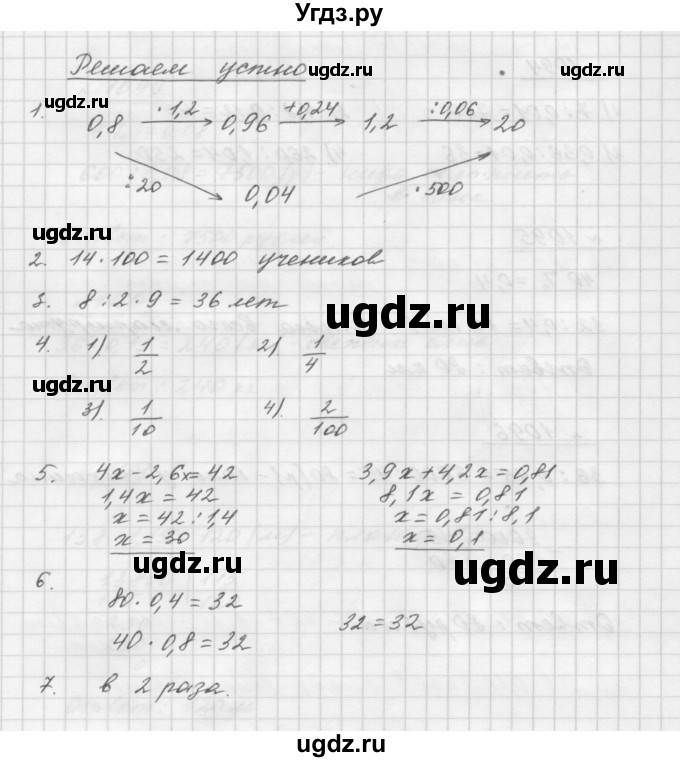 Угдз.ру
Решаем устно
ugdz.ru
ugdz.ru
1. 0,8 →(· 1,2) 0,96 →(+0,24) 1,2 →(: 0,06) 20
: 20 0,04 · 500
ugdz.ru
2. 14 · 100 = 1400 учеников
3. 8 : 2 · 9 = 36 лет
ugdz.ru
4. 1) 1/2 2) 1/4
ugdz.ru
3) 1/10 4) 2/100
5. 4x - 2,6x = 42 3,9x + 4,2x = 0,81
1,4x = 42 8,1x = 0,81
x = 42 : 1,4 x = 0,81 : 8,1
x = 30 x = 0,1
ugdz.ru
ugdz.ru
6.
80 · 0,4 = 32 32 = 32
40 · 0,8 = 32
7. в 2 раза.
ugdz.ru
ugdz.ru